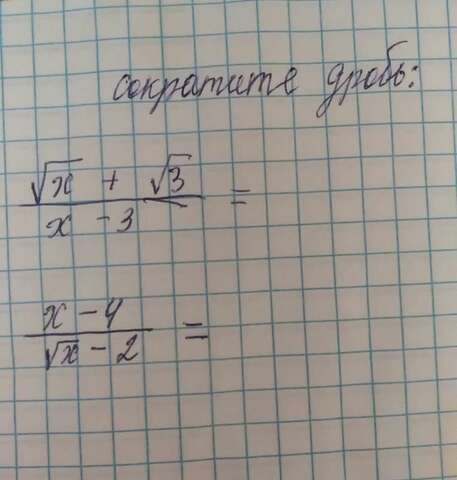 сократите дробь:
√x + √3
x - 3 =
x - 4
√x - 2 =